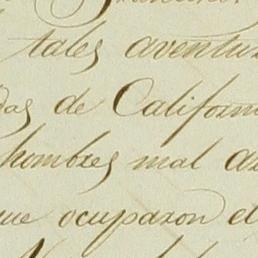 tales aventur
das de Californ
hombres mal ar
que ocuparon el